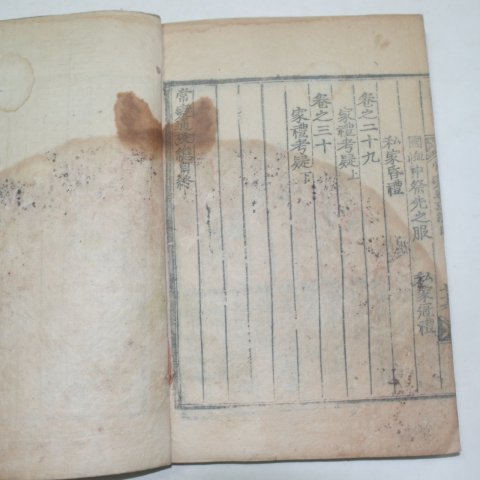 國恤中祭先之服 私家冠禮
私家昏禮
卷之二十九
家禮考疑上
卷之三十
家禮考疑下
常變通攷目錄終